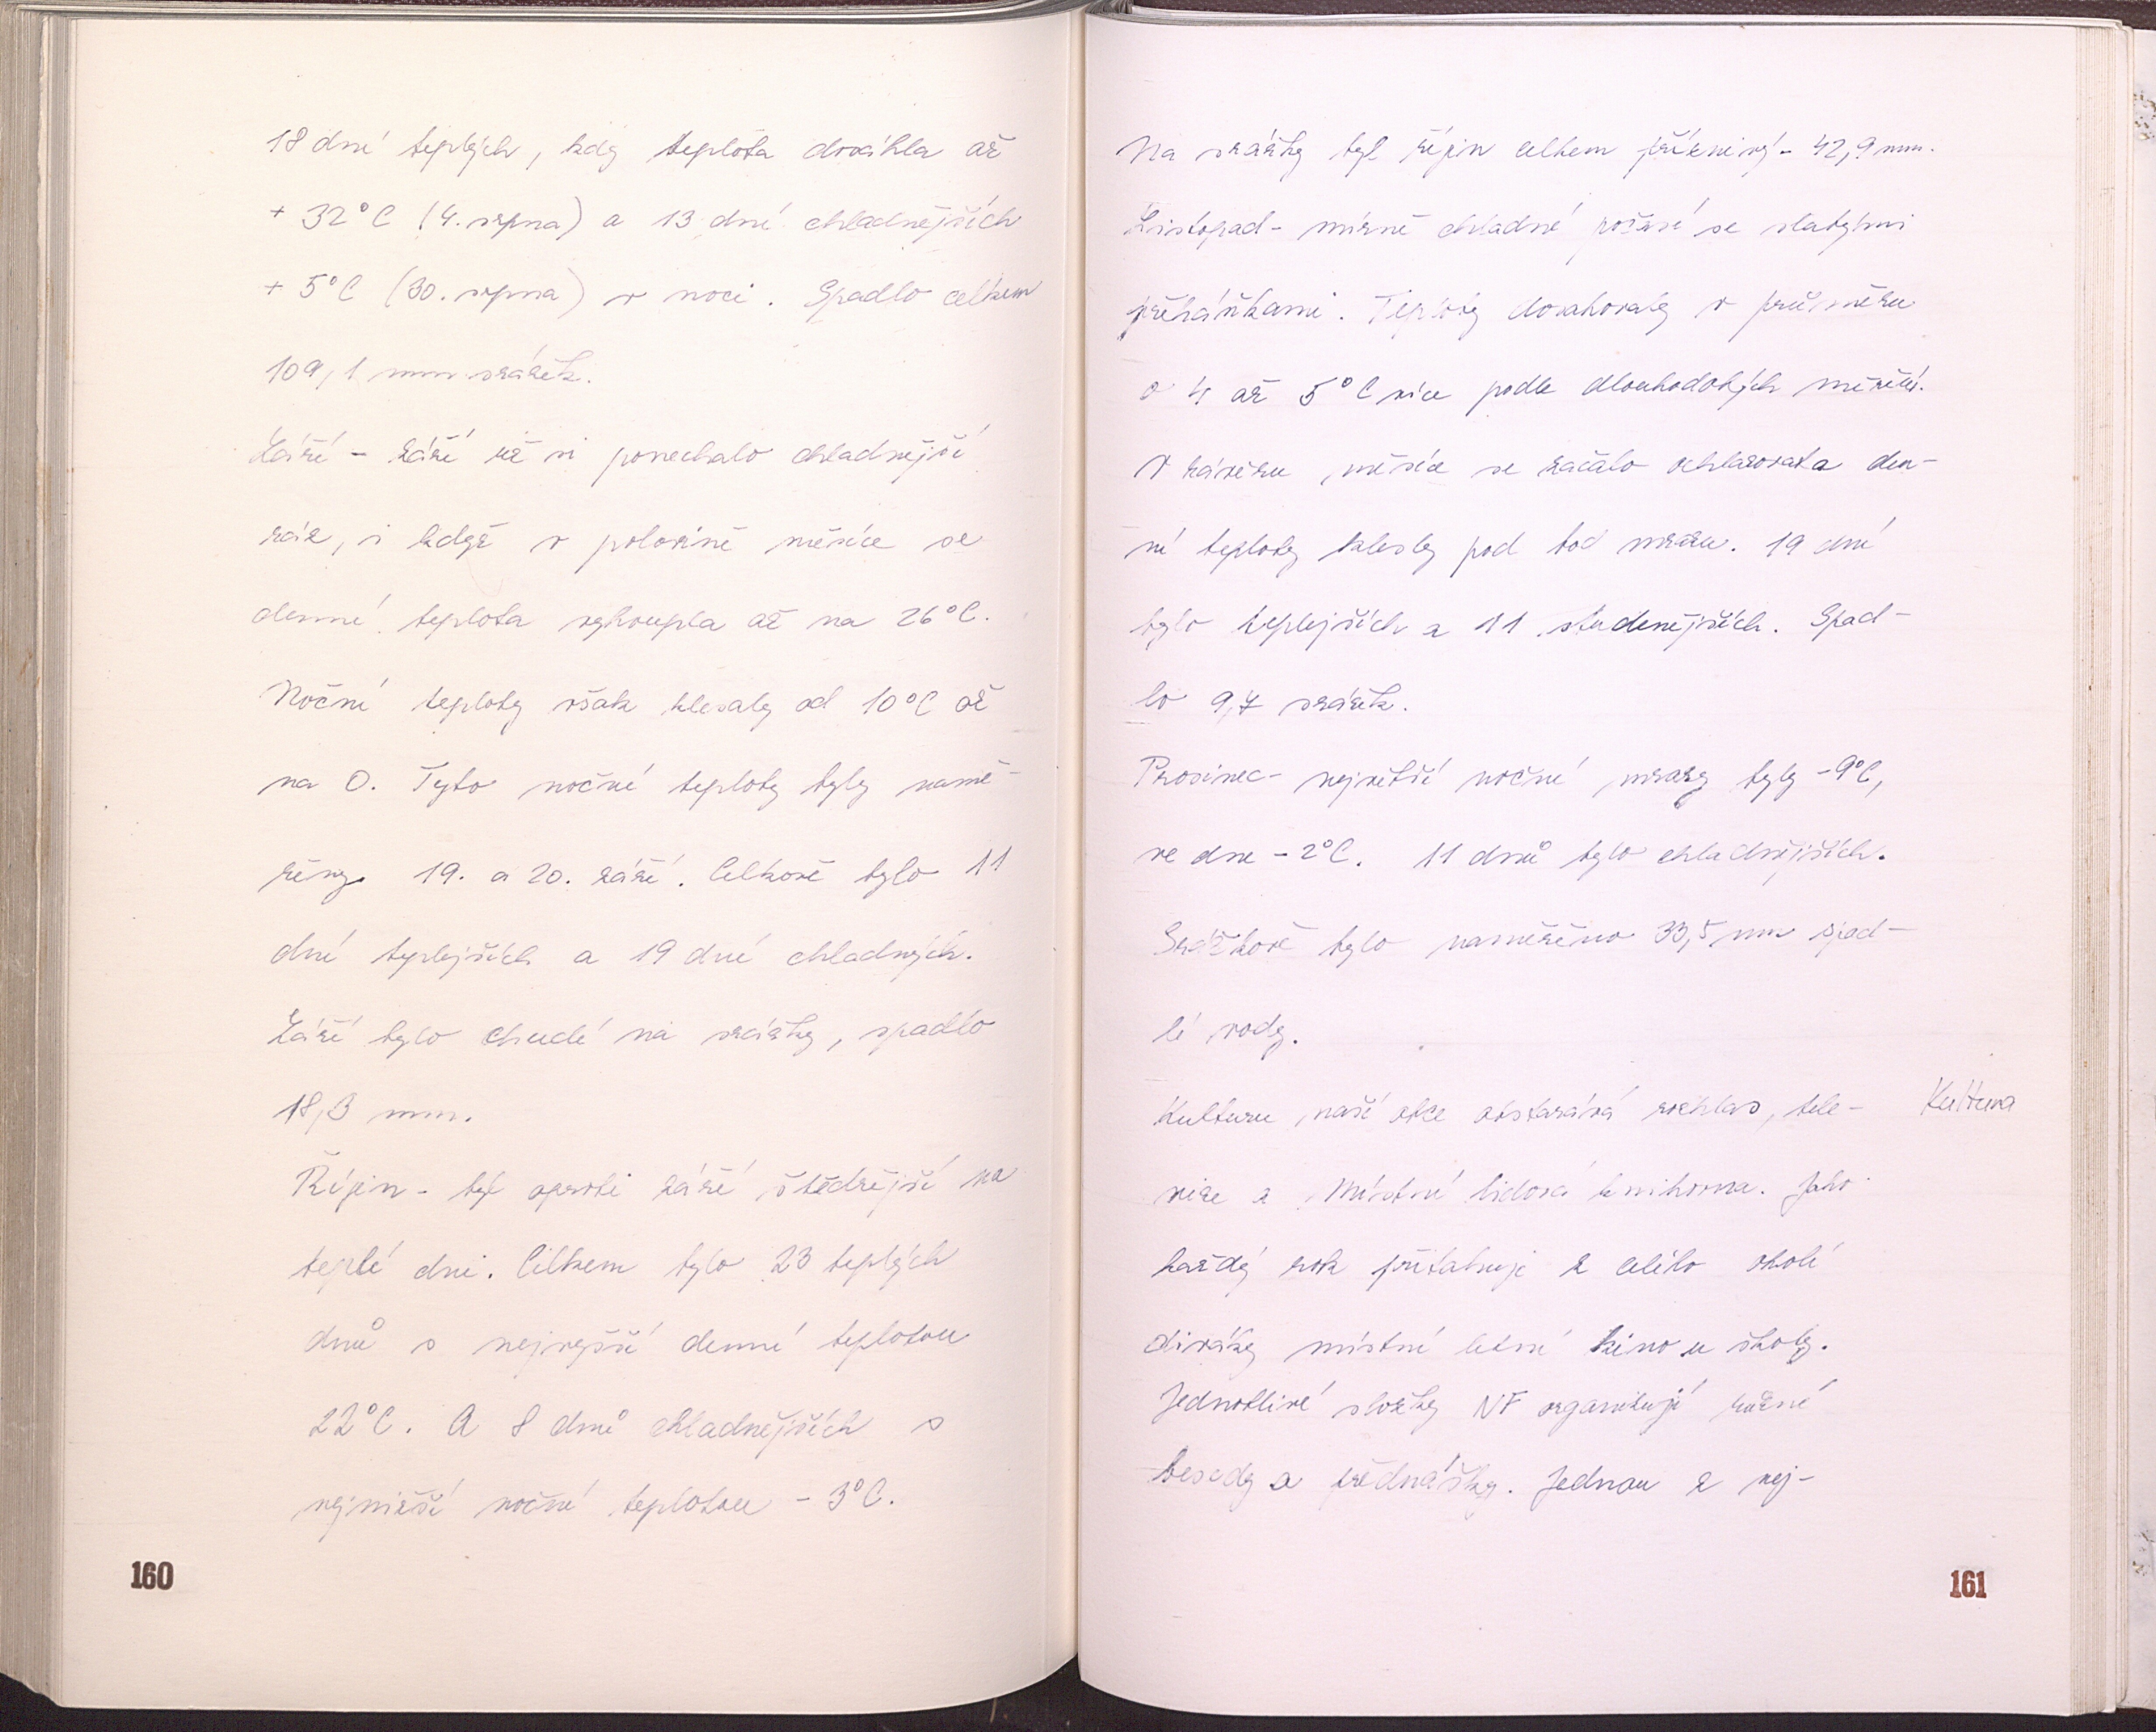 18 dní teplých, kdy teplota dosáhla až
+ 32°C (4. srpna) a 13 dní chladnějších
+ 5°C (30. srpna) v noci. Spadlo celkem
109,1 mm srážek.
Září - září už si ponechalo chladnější
ráz, i když v polovině měsíce se
denní teplota vyhoupla až na 26°C.
Noční teploty však klesaly od 10°C až
na 0. Tyto noční teploty byly namě-
řeny 19. a 20. září. Celkově bylo 11
dní teplejších a 19 dní chladných.
Září bylo chudé na srážky, spadlo
18,3 mm.
Říjen - byl oproti září štědřejší na
teplé dni. Celkem bylo 23 teplých
dnů s nejvyšší denní teplotou
22°C. A 8 dnů chladnějších s
nejnižší noční teplotou - 3°C.
160
Na srážky byl říjen celkem příznivý - 42,9 mm.
Listopad - mírně chladné počasí se slabými
přeháňkami. Teploty dosahovaly v průměru
o 4 až 5°C více podle dlouhodobých měření.
V závěru měsíce se začalo ochlazovat a den-
ní teploty klesly pod bod mrazu. 19 dní
bylo teplejších a 11 studenějších. Spad-
lo 9,7 srážek.
Prosinec - největší noční mrazy byly -9°C,
ve dne - 2°C. 11 dnů bylo chladnějších.
Srážkově bylo naměřeno 33,5 mm spad-
lé vody.
Kulturu naší obce obstarává rozhlas, tele-
Kultura
vize a Místní lidová knihovna. Jako
každý rok přitahuje z celého okolí
diváky místní letní kino u školy.
Jednotlivé složky NF organizují různé
besedy a přednášky. Jednou z nej-
161